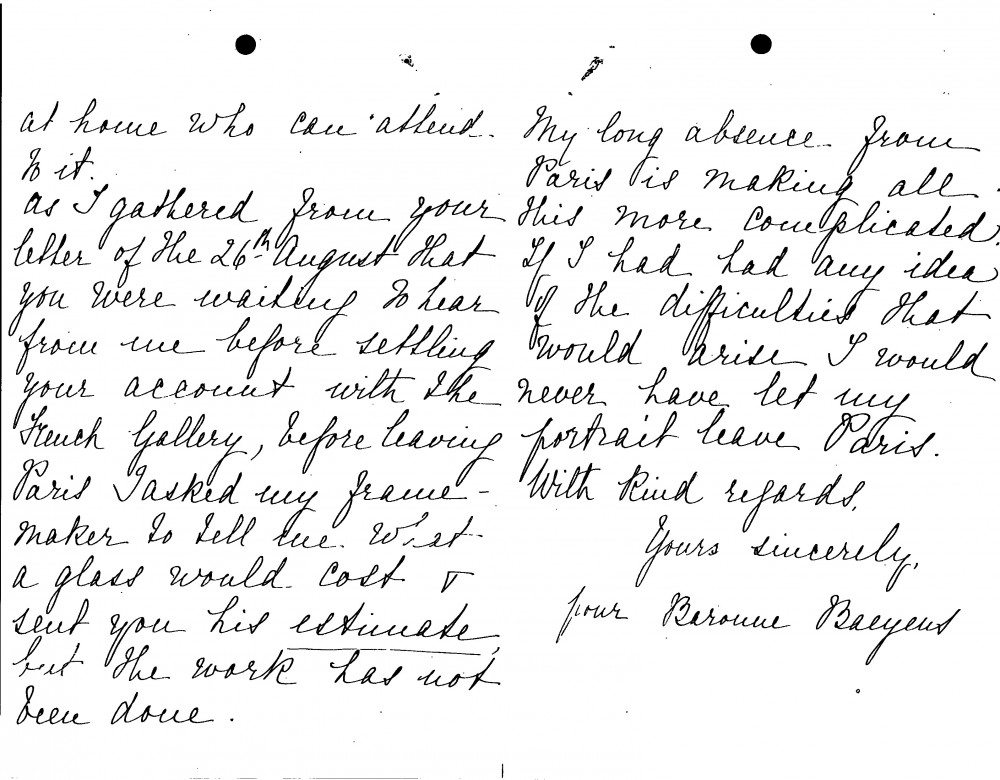 at home who can attend
to it.
as I gathered from your
letter of the 26th August that
you were waiting to hear
from me before settling
your account with the
French Gallery, before leaving
Paris I asked my frame-
maker to tell me what
a glass would cost &
sent you his estimate,
but the work has not
been done.
My long absence from
Paris is making all
this more complicated.
If I had had any idea
of the difficulties that
would arise I would
never have let my
portrait leave Paris.
With kind regards,
Yours sincerely,
pour Baronne Baeyens